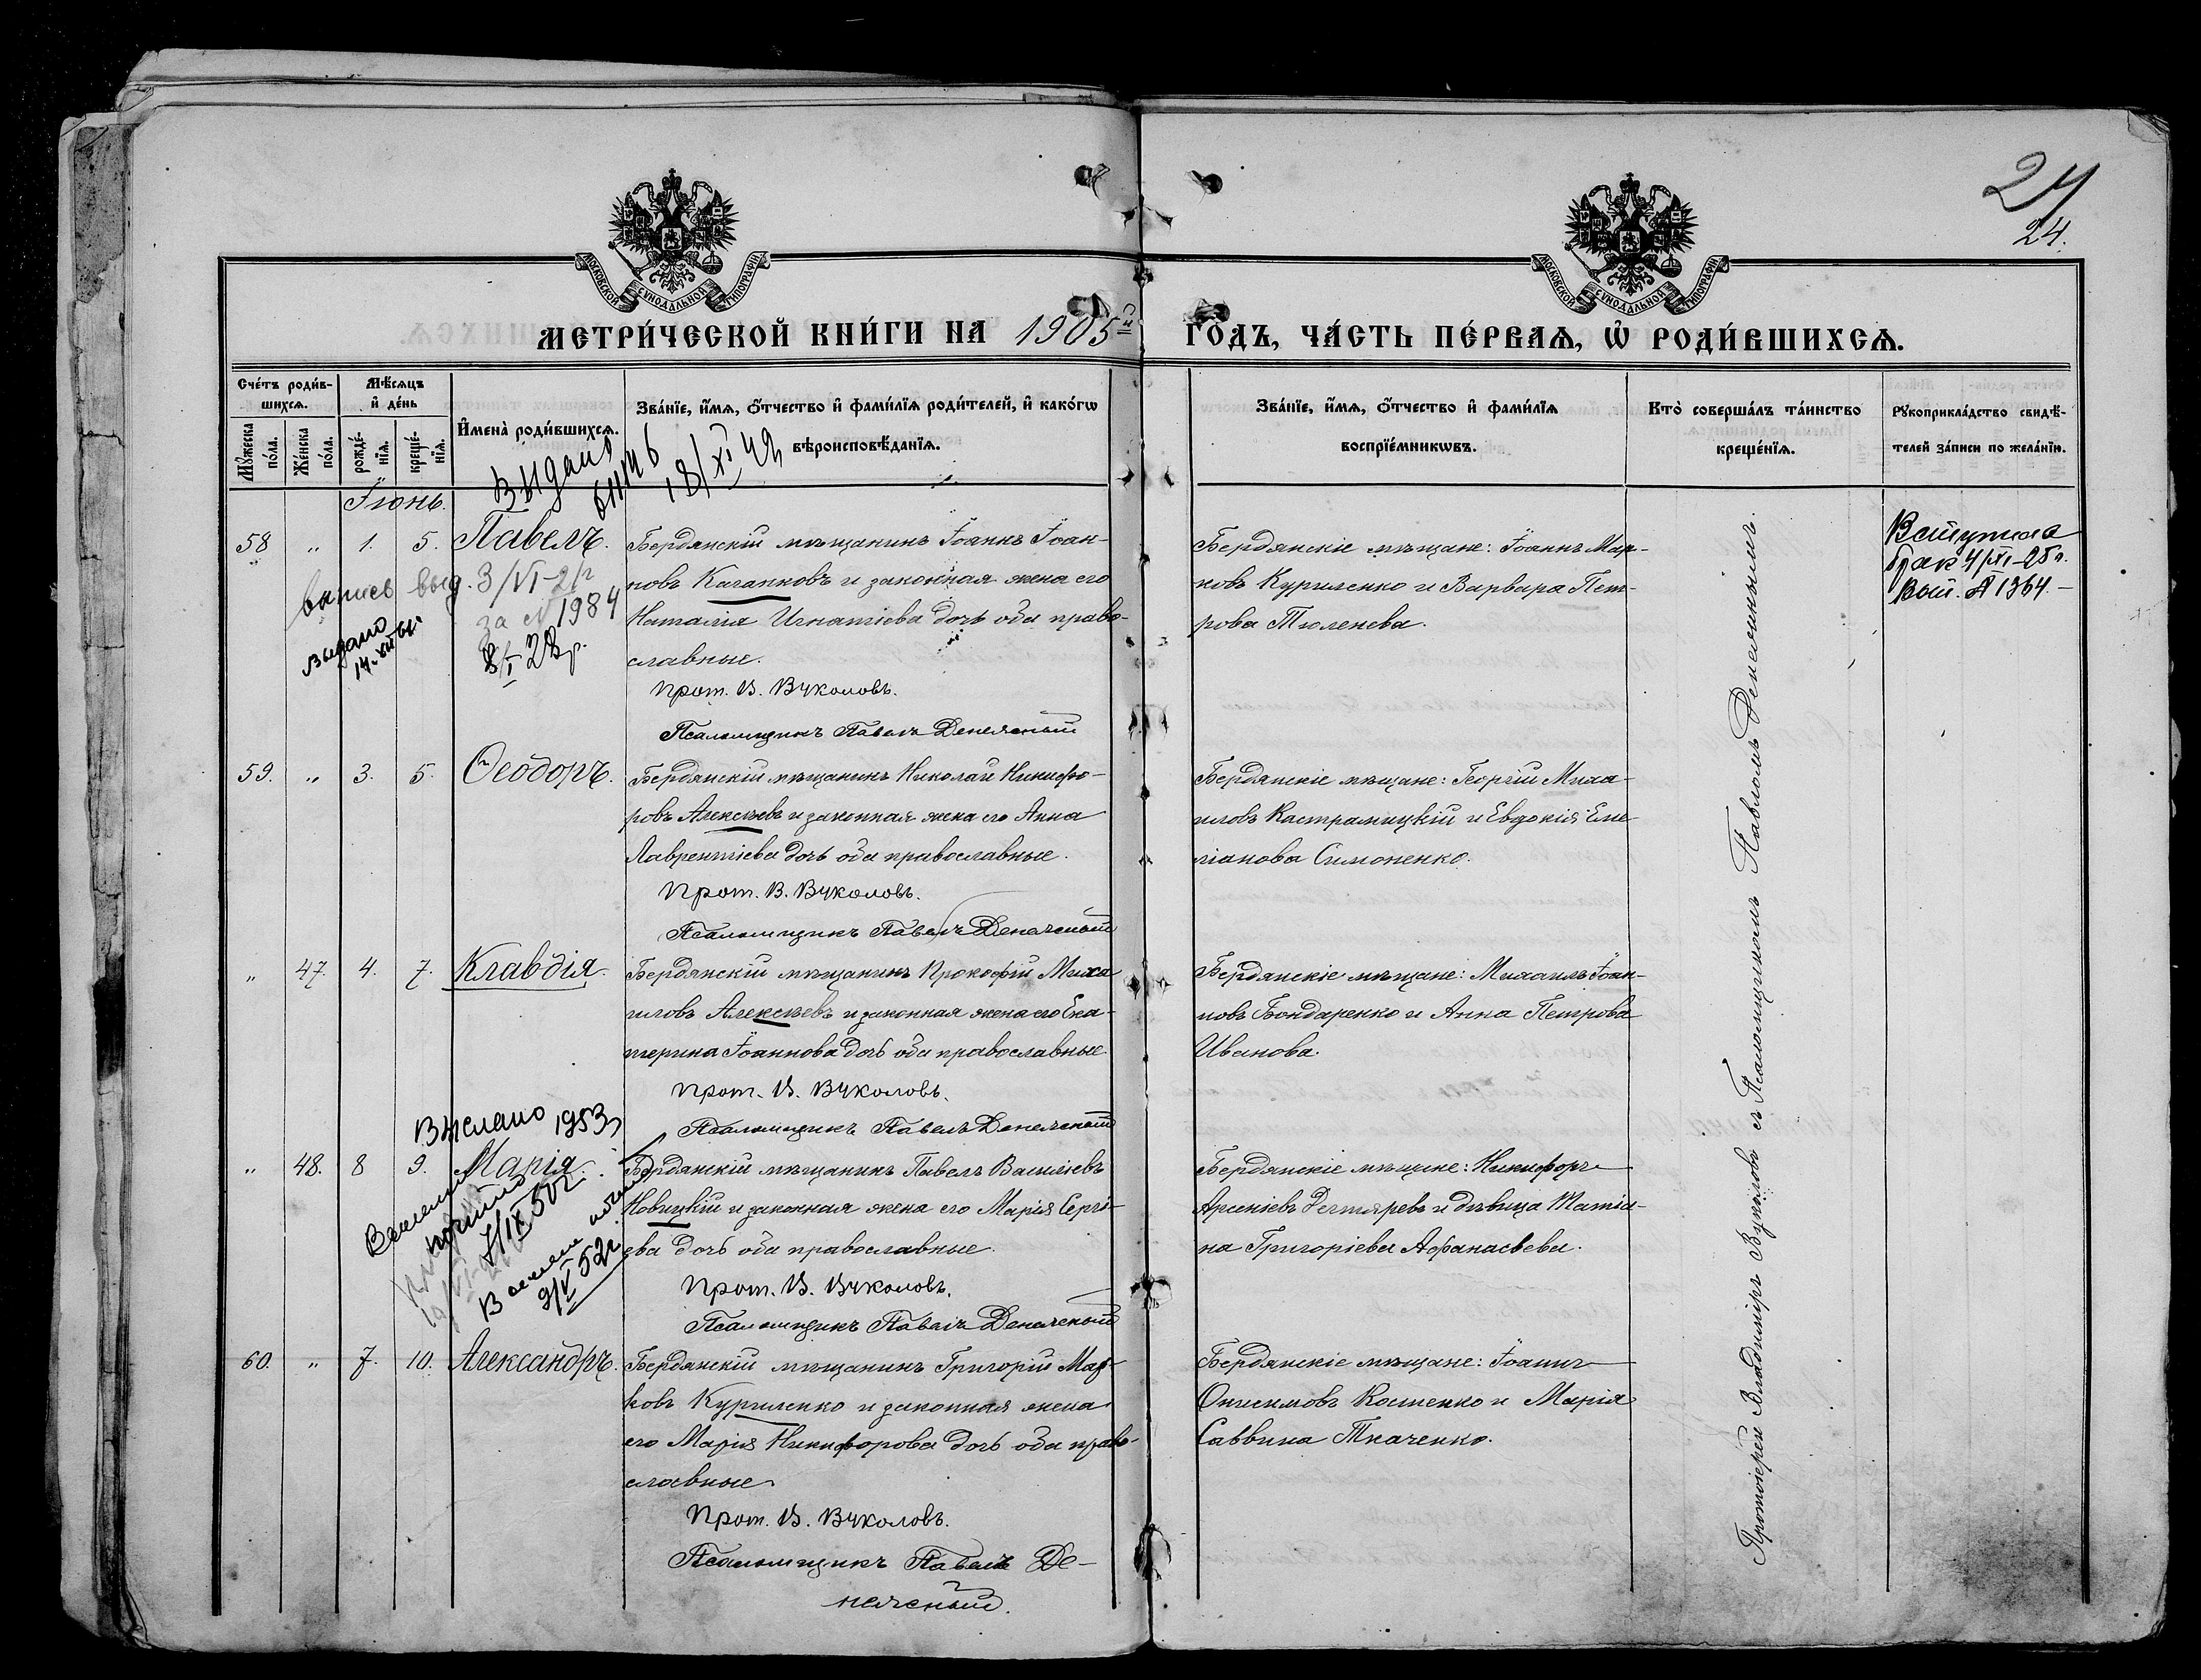 24
24.
МОСКОВСКОЙ СУНОДАЛЬНОЙ ТИПОГРАФІИ
МОСКОВСКОЙ СУНОДАЛЬНОЙ ТИПОГРАФІИ
МЕТРИ́ЧЕСКОЙ КНИ́ГИ НА 1905й ГОДЪ, ЧА́СТЬ ПЕ́РВАѦ, Ѡ҆ РОДИ́ВШИХСѦ.
Сче́тъ роди́в-
шихсѧ.
Мꙋжеска по́ла.
Же́нска по́ла.
Мѣ́сѧцъ
и҆ де́нь
рожде́-
нїѧ.
креще́-
нїѧ.
И҆мена̀ роди́вшихсѧ.
Зва́нїе, и҆́мѧ, ѻ҆́тчество и҆ фами́лїѧ роди́телей, и҆ како́гѡ
вѣроисповѣ́данїѧ.
Зва́нїе, и҆́мѧ, ѻ҆́тчество и҆ фами́лїѧ
воспрїе́мникѡвъ.
Кто̀ соверша́лъ та́инство
креще́нїѧ.
Рꙋкоприкла́дство свидѣ́-
телей за́писи по жела́нїю.
Выдано
18/XI 42
Іюнь.
58 „ 1. 5. Павелъ.
Бердянскій мѣщанинъ Іоаннъ Іоан-
новъ Каганковъ и законная жена его
Наталія Игнатіева дочь оба право-
славные.
Прот. В. Вуколовъ.
Псаломщикъ Павелъ Денежный
Бердянскіе мѣщане: Іоаннъ Мар-
ковъ Куриленко и Варвара Пет-
рова Тюленева.
Вступила
брак 4/XI-25 г.
Вып. № 1364.-
выпись выд. 3/VI-21г
за № 1984
выдано
8/I 28г.
59. „ 3. 5. Ѳеодоръ.
Бердянскій мѣщанинъ Николай Никифо-
ровъ Алексѣевъ и законная жена его Анна
Лаврентіева дочь оба православные.
Прот. В. Вуколовъ.
Псаломщикъ Павелъ Денежный
Бердянскіе мѣщане: Георгій Миха-
иловъ Кастрамицкій и Евдокія Еме-
ліанова Симоненко.
„ 47. 4. 7. Клавдія.
Бердянскій мѣщанинъ Прокофій Миха-
иловъ Алексѣевъ и законная жена его Ека-
терина Іоаннова дочь оба православные.
Прот. В. Вуколовъ.
Псаломщикъ Павелъ Денежный
Бердянскіе мѣщане: Михаилъ Іоан-
новъ Бондаренко и Анна Петрова
Иванова.
1953
„ 48. 8 9. Марія.
Бердянскій мѣщанинъ Павелъ Василіевъ
Новицкій и законная жена его Марія Сергі-
ева дочь оба православные.
Прот. В. Вуколовъ.
Псаломщикъ Павелъ Денежный
Бердянскіе мѣщане: Никифоръ
Арсеніевъ Дегтяревъ и дѣвица Татіа-
на Григоріева Афанасьева.
9/V 52г.
60. „ 7. 10. Александръ.
Бердянскій мѣщанинъ Григорій Мар-
ковъ Куриленко и законная жена
его Марія Никифорова дочь оба право-
славные.
Прот. В. Вуколовъ.
Псаломщикъ Павелъ Де-
нежный.
Бердянскіе мѣщане: Іоаннъ
Онисимовъ Костенко и Марія
Саввина Ткаченко.
Протоіерей Владиміръ Вуколовъ съ Псаломщикомъ Павломъ Денежнымъ.